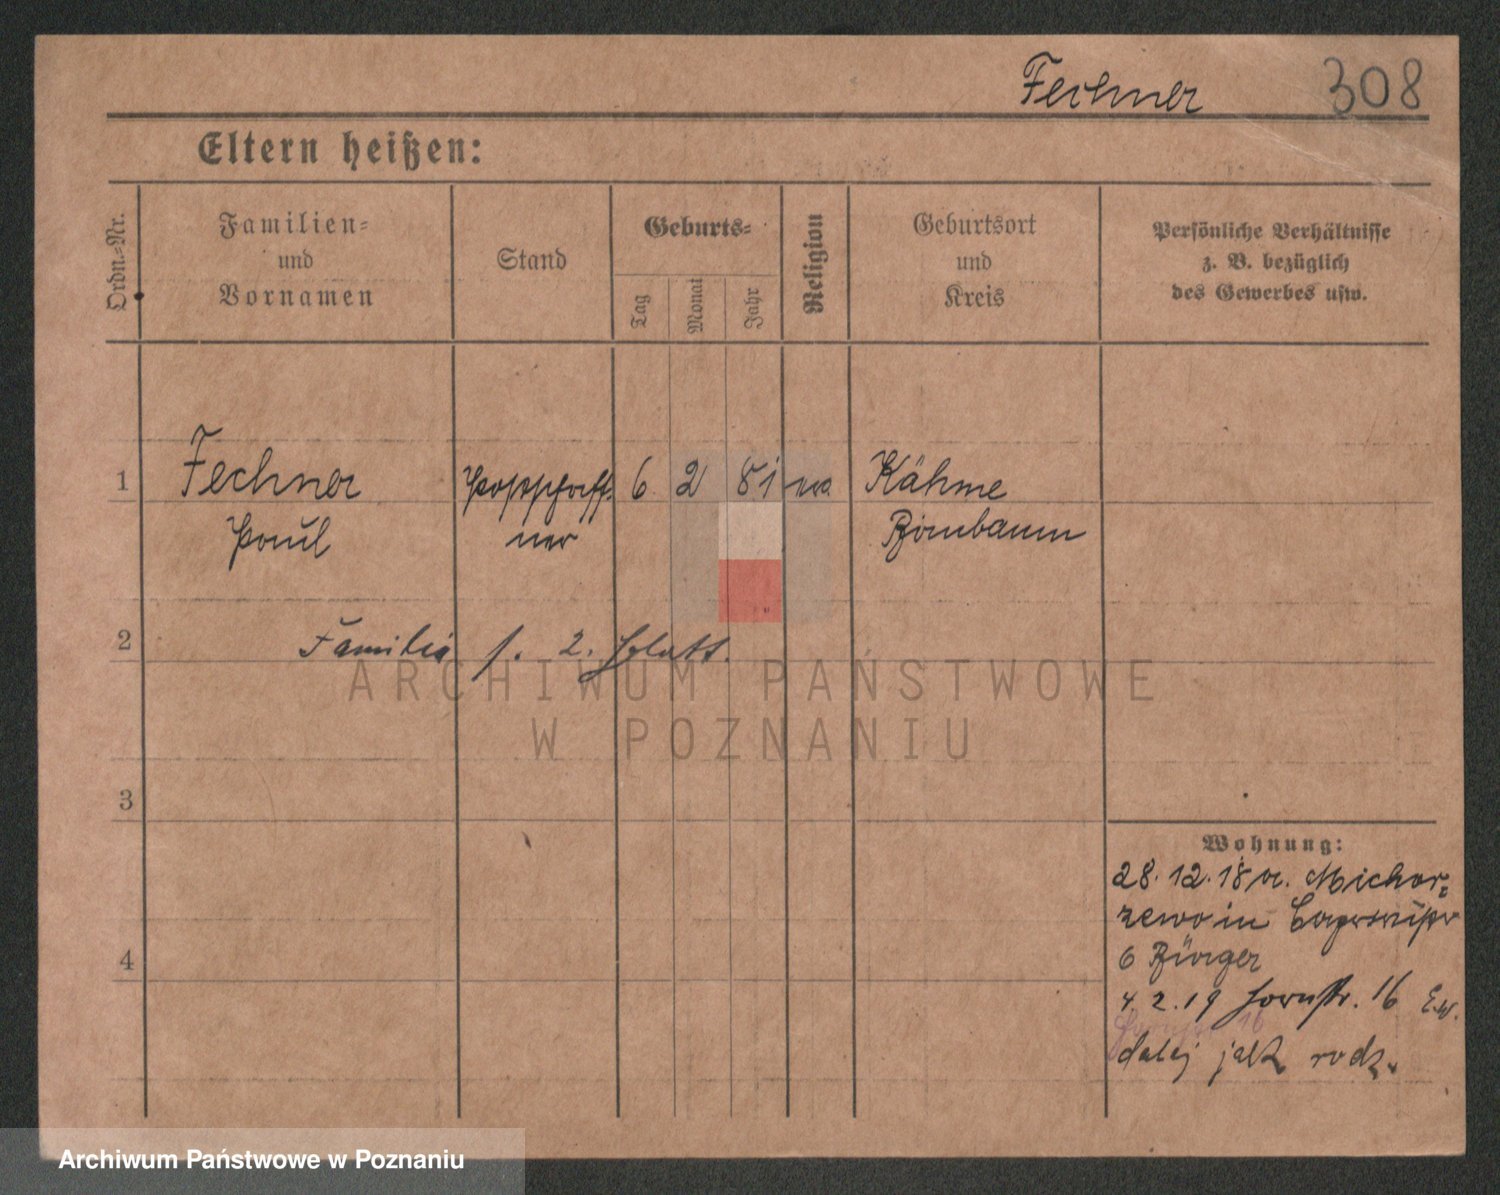 Fechner 308
Eltern heißen:
Ordn.-Nr.
Familien-
und
Vornamen
Stand
Geburts-
Tag
Monat
Jahr
Religion
Geburtsort
und
Kreis
Persönliche Verhältnisse
z. B. bezüglich
des Gewerbes usw.
1 Fechner Postschaff- 6 2 81 ev. Kähme
Paul ner Birnbaum
2 Familie s. 2. Blatt.
ARCHIWUM PAŃSTWOWE
W POZNANIU
3
Wohnung:
28.12.18 v. Michor-
zewo in
6 Bürger
4
4.2.19 16 E.w.
16
dalej jak rodz.
Archiwum Państwowe w Poznaniu